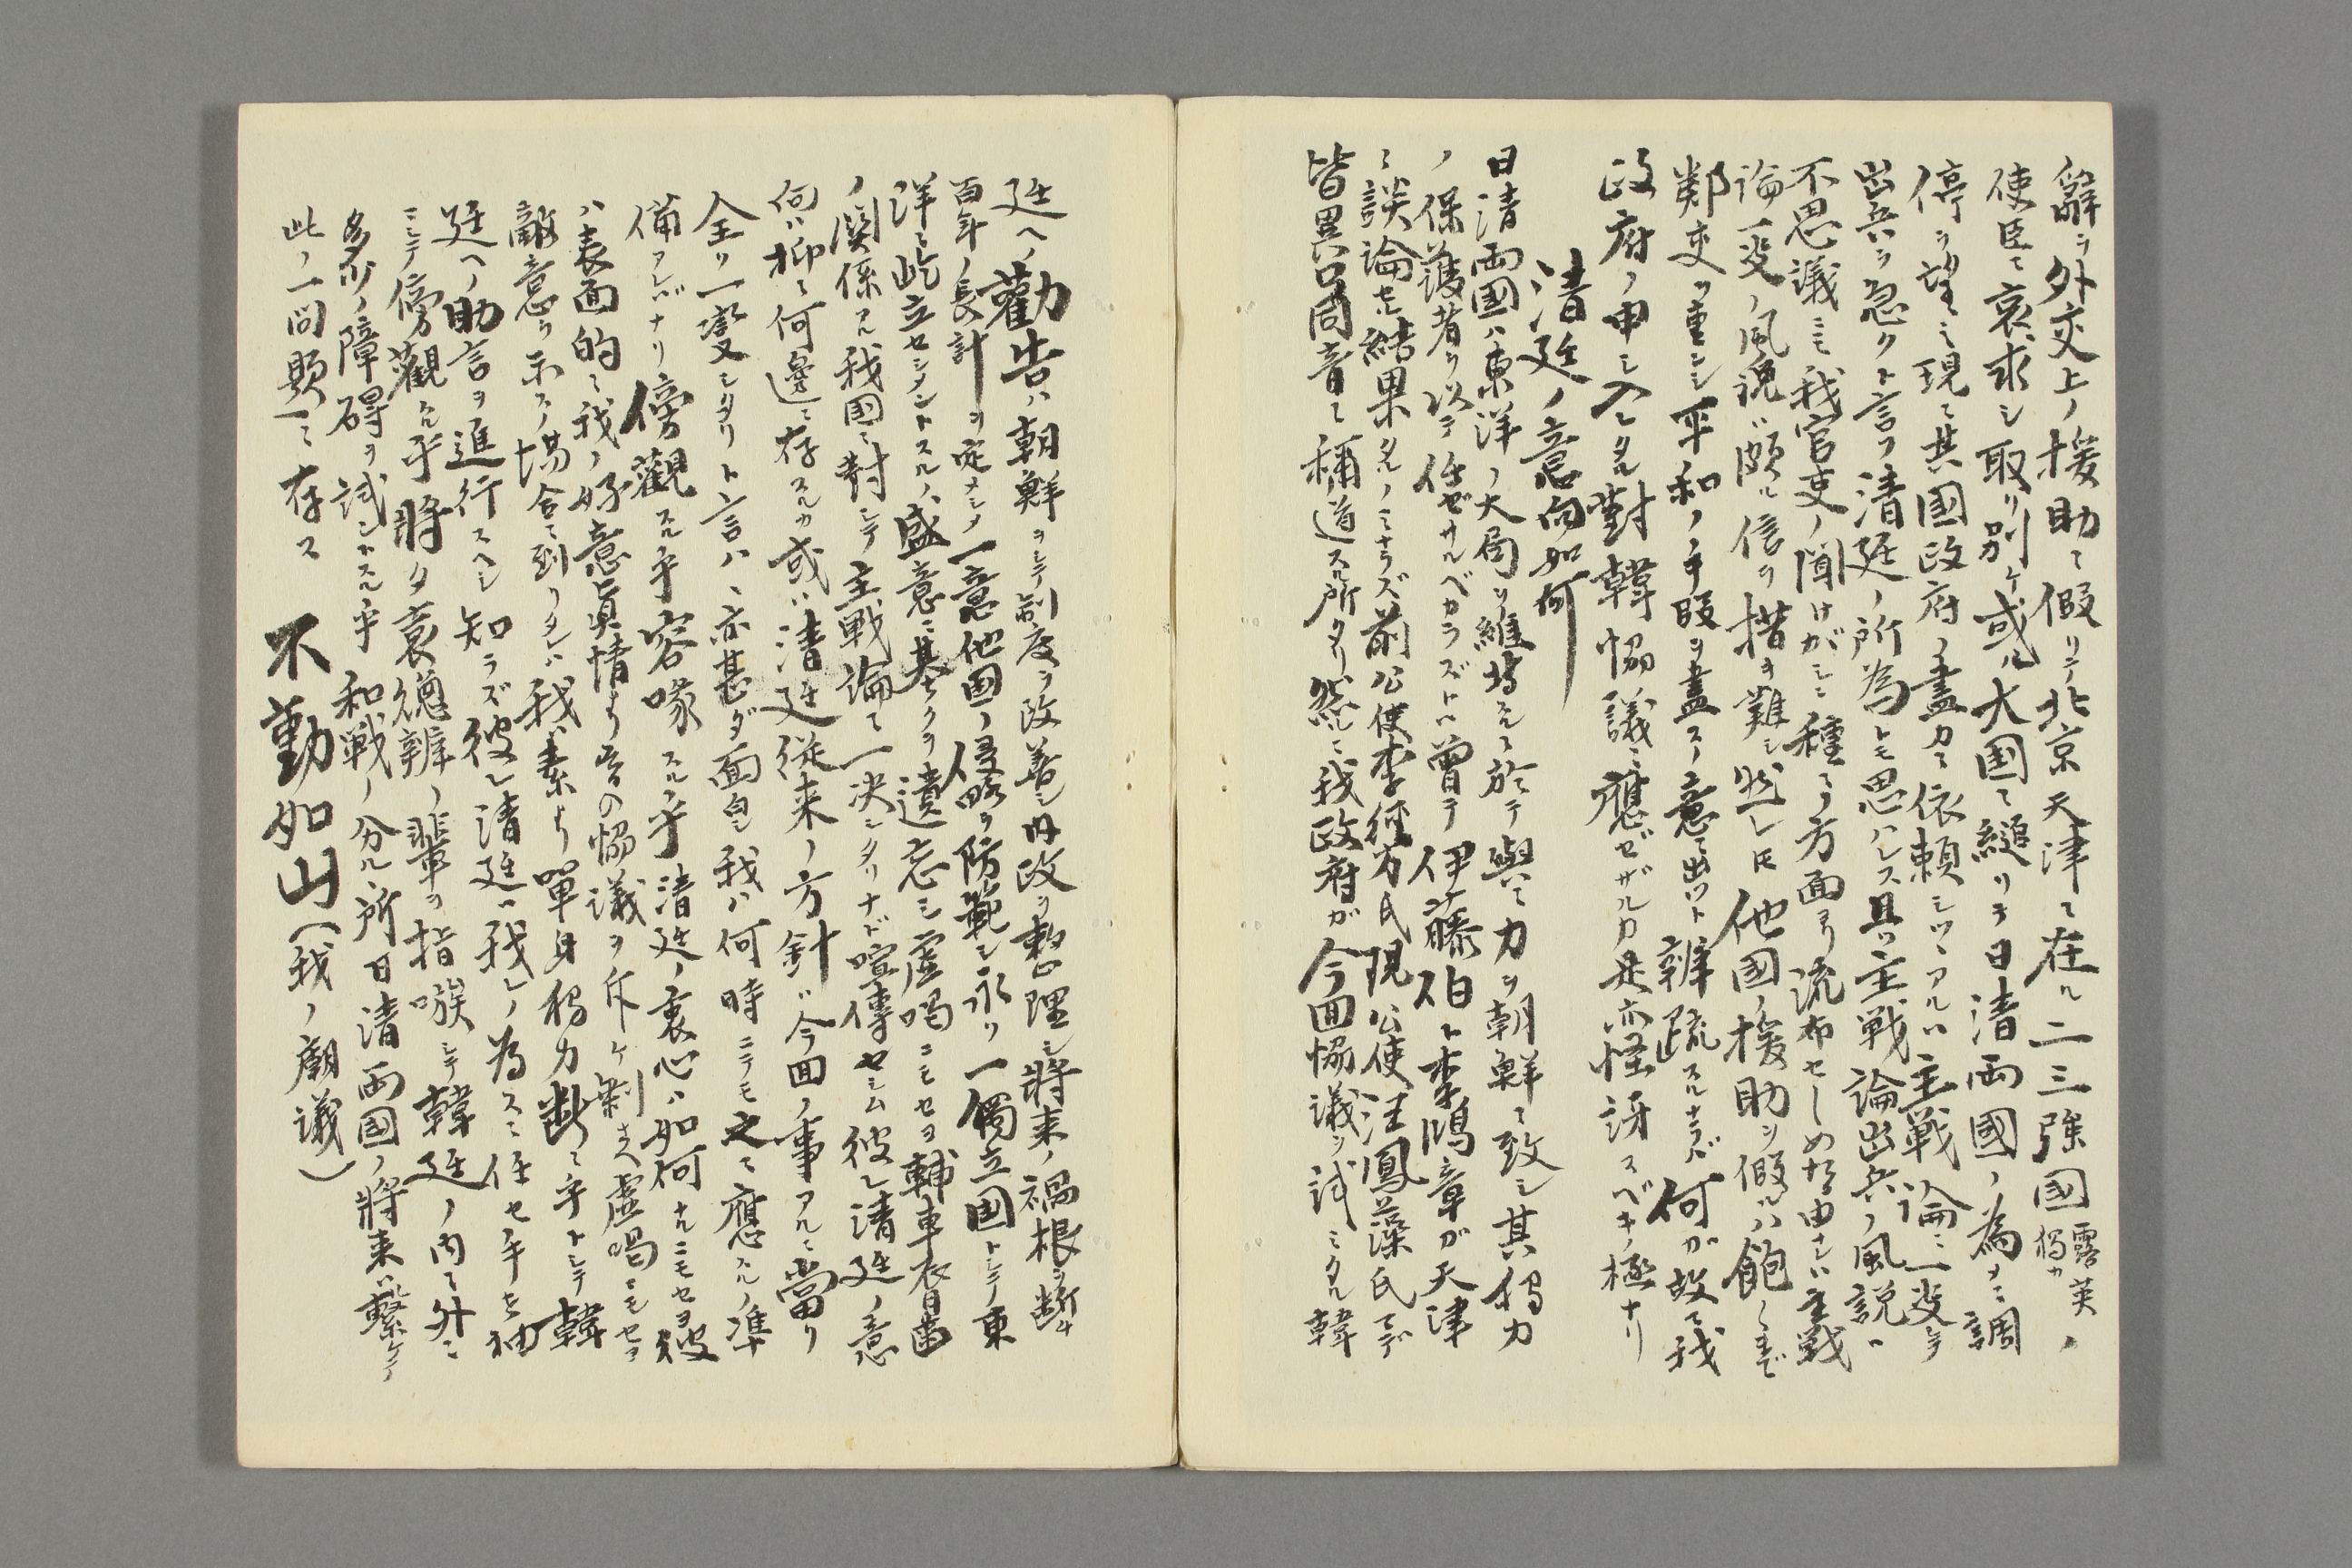 辭ヲ外交上ノ援助ニ假リテ北京天津ニ在ル二三強國露英獨カノ
使臣ニ哀求シ取リ別ケ或ル大国ニ縋リテ日清両國ノ為メニ調
停ヲ望ミ現ニ其國政府ノ盡力ニ依頼シツヽアルハ主戦論ニ一変シテ
出兵ヲ急グト言フ清廷ノ所為トモ思ハレス且ツ主戦論出兵ノ風説ハ
不思議ニモ我官吏ノ聞けがしニ種々ノ方面ヨリ流布せしめたる由ナレハ主戦
論一変ノ風説ハ頗ル信ヲ措キ難シ然レ𪜈他国ノ援助ヲ假ルハ飽くまで
鄰交ヲ重ンシ平和ノ手段ヲ盡スノ意ニ出ツト辨疏スルナラバ何が故ニ我
政府ノ申シ入レタル對韓恊議ニ應ゼザルカ是亦怪訝スベキノ極ナリ
清廷ノ意向如何
日清両国ハ東洋ノ大局ヲ維持スルニ於テ與ニ力ヲ朝鮮ニ致シ其独力
ノ保護者ヲ以テ任ゼサルベカラズトハ曽テ伊藤伯ト李鴻章ガ天津
ニ談論セル結果タルノミナラズ前公使李経方氏現公使汪鳳藻氏モデ
皆異口同音ニ稱道スル所タリ然ルニ我政府が今回恊議ヲ試ミタル韓
廷ヘノ勸告ハ朝鮮ヲシテ制度ヲ改善シ内政ヲ整理シ将来ノ禍根ヲ断チ
百年ノ長計ヲ定メシメ一意他国ノ侵略ヲ防範シ永ク一獨立国トシテ東
洋ニ屹立セシメントスルノ盛意ニ基ケクヲ遺忘シ虚喝ニモセヨ輔車唇歯
ノ関係アル我国ニ對シテ主戦論ニ一決シタリナド喧傳セシム彼レ清廷ノ意
向ハ抑ニ何邊ニ存スルカ或ハ清廷従来ノ方針ガ今回ノ事アルニ當リ
全ク一變シタリト言ハヽ亦甚ダ面白シ我ハ何時ニテモ之ニ應スルノ準
備アレバナリ傍觀スル乎容喙スル乎清廷ノ衷心ハ如何ナルニモセヨ彼
ハ表面的ニ我ノ好意真情より皆の恊議ヲ斥ケ剰さへ虚喝ニモセヨ
敵意ヲ示スノ場合ニ到リタレハ我ハ素より單身独力断ニ乎トシテ韓
廷ヘノ助言ヲ進行スヘシ知ラズ彼レ清廷ハ我レノ為スニ任セ手を袖
ニシテ傍觀スル乎将タ袁總辦ノ輩ヲ指嗾シテ韓廷ノ内ニ外ニ
多少ノ障碍ヲ試ントスル乎和戦ノ分ル所日清両国ノ将来ニ繋ケテ
此ノ一問題ニ存ス
不動如山(我ノ廟議)